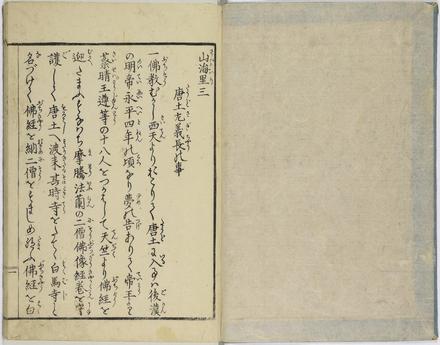 山海里三
唐土左義長の事
一佛教むかし西天よりおこりて唐土に入るは後漢
の明帝永平四年の頃なり夢の告ありて帝王より
蔡晴王遵等の十八人をつかはして天竺より佛経を
迎たまふすなはち摩騰法蘭の二僧佛像経巻を守
護して唐土へ渡来其時寺をたてゝ白馬寺と
名づけて佛経を納二僧をすましめ給ふ佛経を白